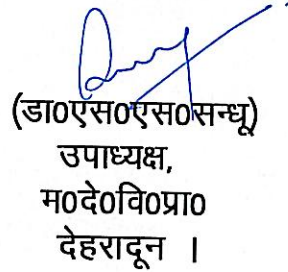 (डा0एस0एस0सन्धू)
उपाध्यक्ष,
म0दे0वि0प्रा0
देहरादून ।